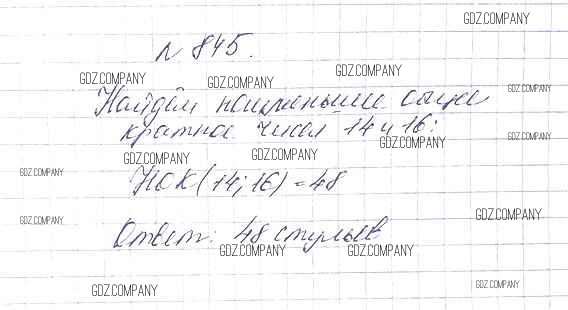 GDZ.COMPANY
№ 845.
GDZ.COMPANY GDZ.COMPANY GDZ.COMPANY
Найдём наименьшее общее GDZ.COMPANY
кратное чисел 14 и 16: GDZ.COMPANY
GDZ.COMPANY GDZ.COMPANY GDZ.COMPANY
GDZ.COMPANY
НОК(14; 16) = 48
GDZ.COMPANY GDZ.COMPANY
Ответ: 48 стульев
GDZ.COMPANY GDZ.COMPANY
GDZ.COMPANY GDZ.COMPANY